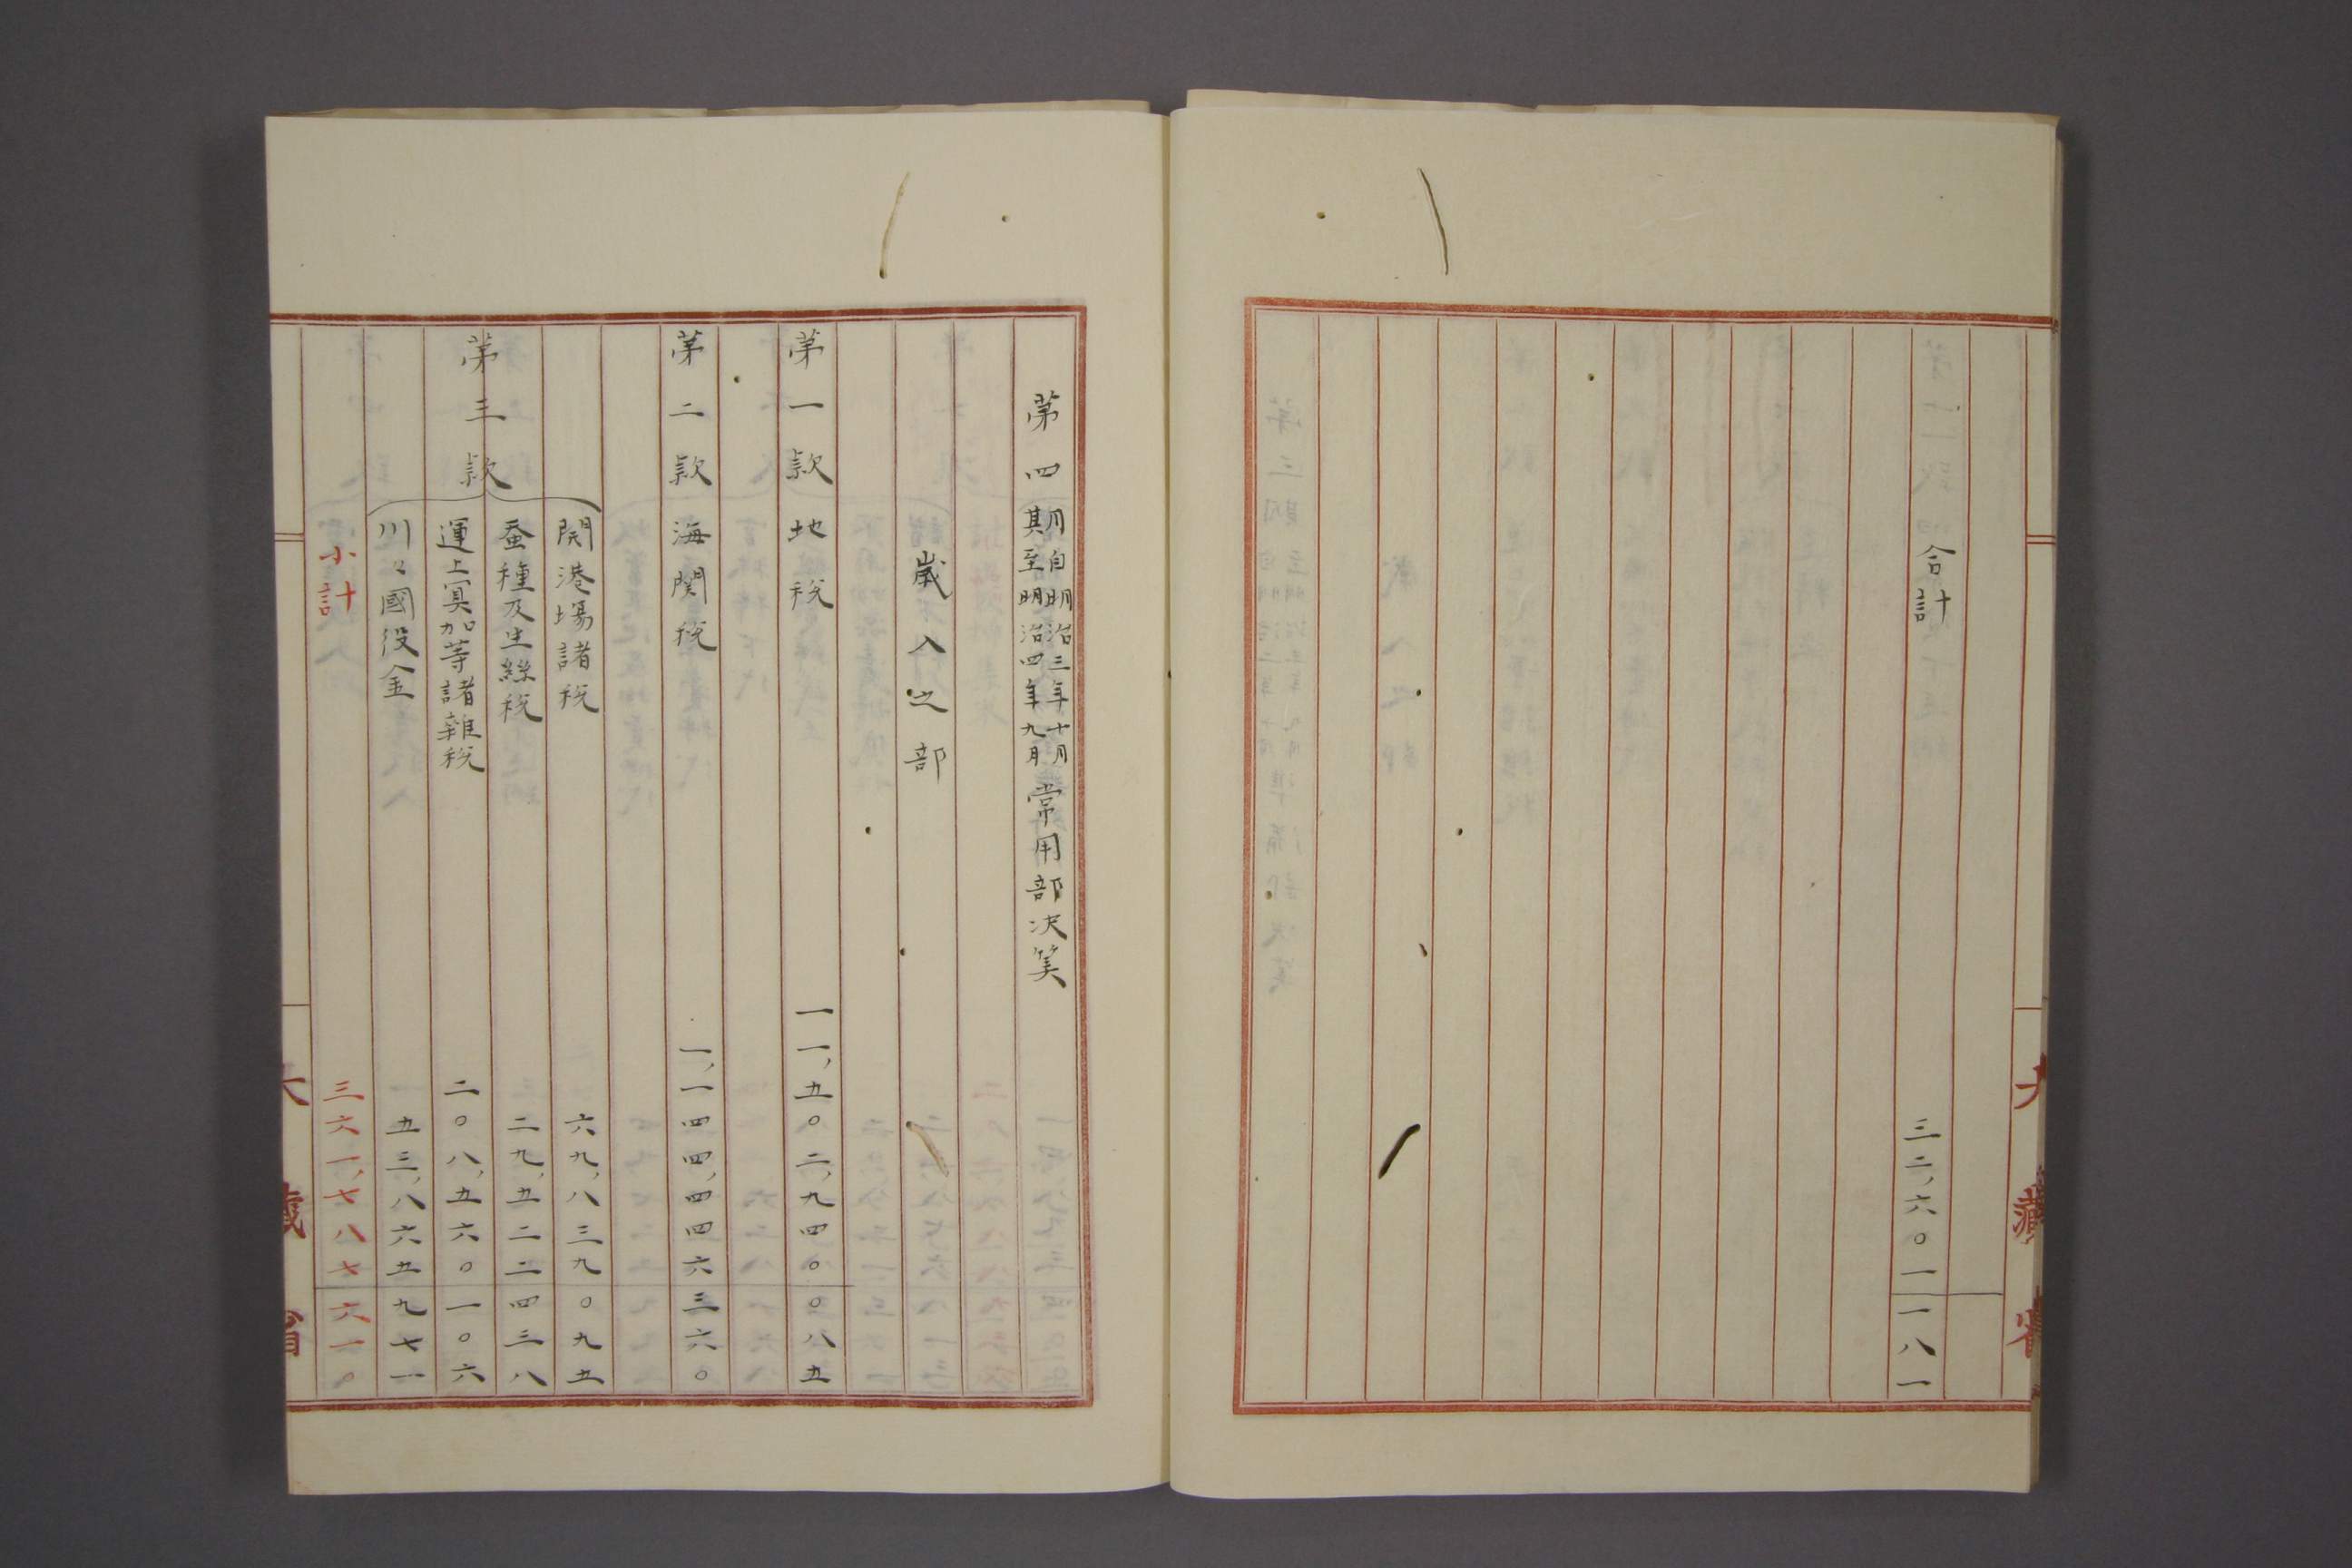 大藏省
合計 三二,六〇一一八一
第四期 自明治三年十月
至明治四年九月 常用部决算
歳入之部
第一款 地税 一一,五〇二,九四〇〇八五
第二款 海関税 一,一四四,四四六三六〇
第三款
開港場諸税 六九,八三九〇九五
蚕種及生絲税 二九,五二二四三八
運上冥加等諸雜税 二〇八,五六〇一〇六
川々國役金 五三,八六五九七一
小計 三六一,七八七六一〇
大藏省